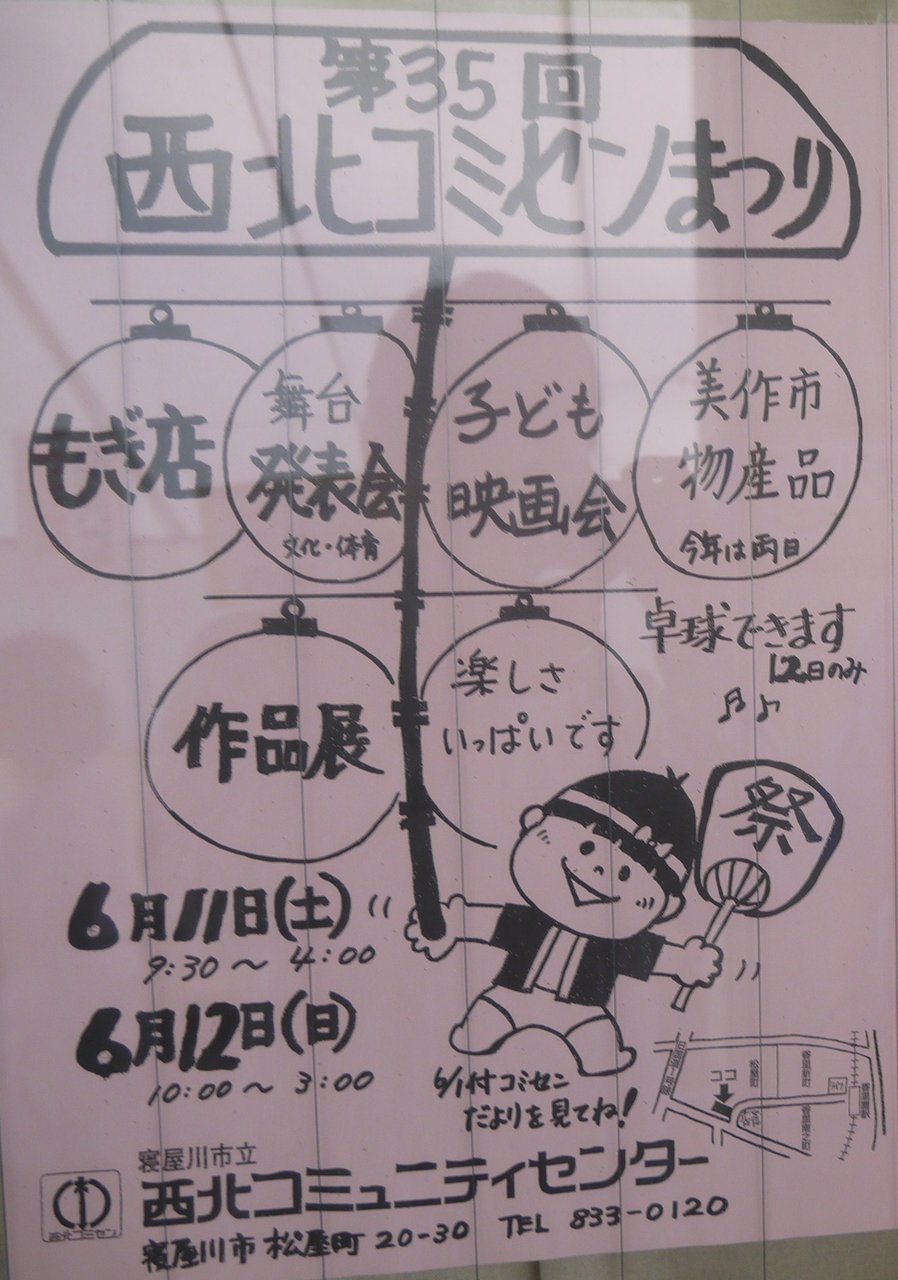 第35回
西北コミセンまつり
もぎ店
舞台
発表会
文化・体育
子ども
映画会
美作市
物産品
今年は両日
作品展
楽しさ
いっぱいです
卓球できます
12日のみ
祭
6月11日(土)
9:30～4:00
6月12日(日)
10:00～3:00
6/1付コミセン
だよりを見てね!
ココ
寝屋川市立
西北コミュニティセンター
寝屋川市松屋町20-30 TEL 833-0120
西北コミセン